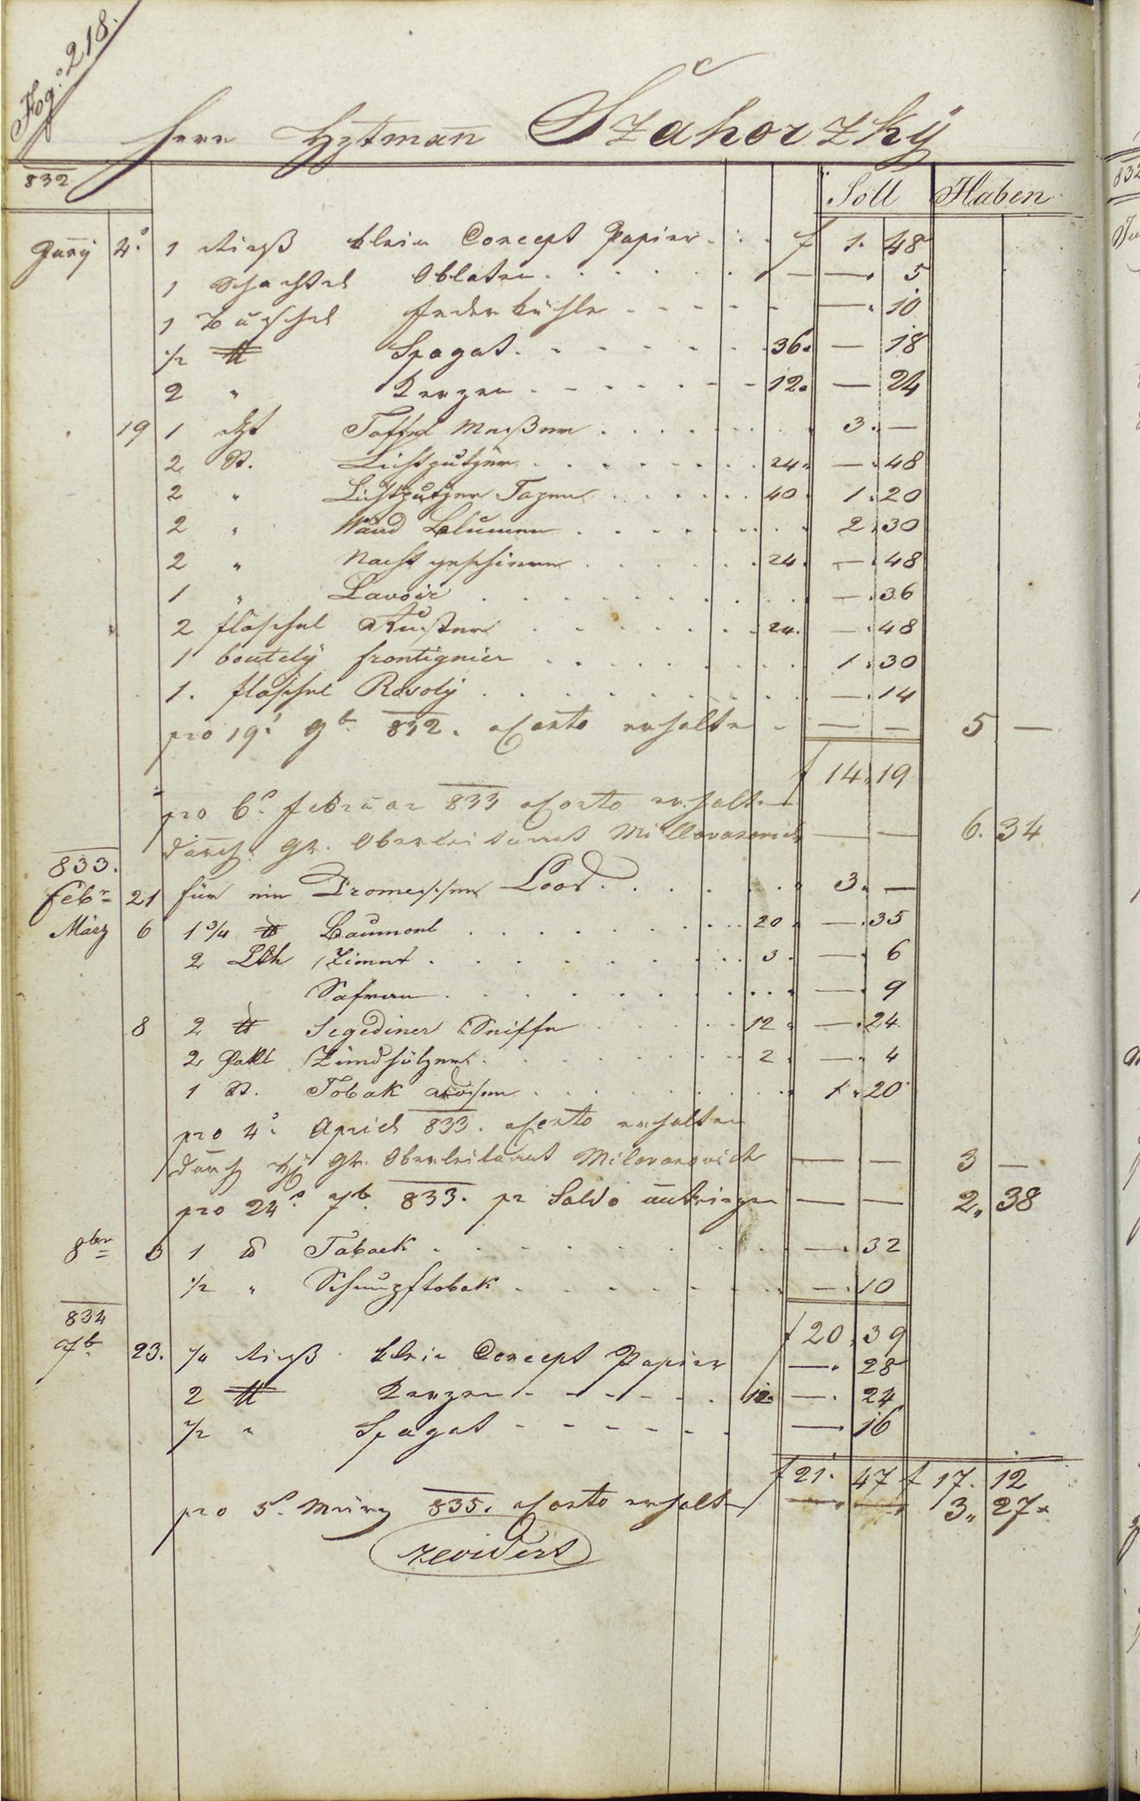 Fog: 218.
Herr Hptman Szahorzký
832
Soll Haben
Juny 4. 1 Rieß klein Concept Papier f 1. 48
1 Schachtel Oblaten — 5
1 Buschel Federkühle — 10
1/2 ℔ Spagat 36. — 18
2 " Kerzen 12. — 24
19 1 Taffel Meßer 3. —
2 St. Lichtputzer 24. — 48
2 " Lichtputzer Tazen 40 1. 20
2 " Wand Blumen 2. 30
2 " Nachtgeschirre 24. — 48
1 " Lavoir — 36
2 flaschel 24. — 48
1 boutely frontignier 1. 30
1. flaschel Rosoly — 14
pro 19. 9b. 832. a Conto erhalten — — 5 —
f 14. 19
pro 6. februar 833 a Conto erhalten
durch H. Oberleitenant Millovanovich — — 6. 34
833.
Febr 21 für ein Promessen Loos 3. —
März 6 1 3/4 ℔ Baumoel 20 — 35
2 Lth Zimmt 3. — 6
Safran — 9
8 2 ℔ Segediner Seiffe 12 — 24
2 Pakl Zündhölzer 2 — 4
1 St. Tobak 1. 20
pro 4. April 833. a Conto erhalten
durch H. Oberleitanat Milovanovich — — 3 —
pro 24. 7b. 833. pr Saldo — — 2, 38
8ber 6 1 ℔ Taback — 32
1/2 " Schnupftobak — 10
834
f 20. 39
7b. 23. 1/4 Rieß klein Concept Papier — 28
2 ℔ Kerzen 12. — 24
1/2 " Spagat — 16
f 21. 47 f 17. 12
pro 5. März 835. a Conto erhalten — — 3, 27
revidirt